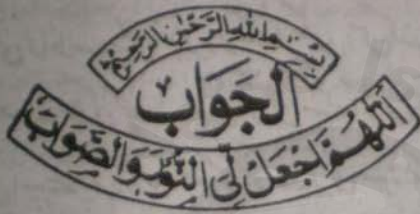 بِسْمِ اللهِ الرَّحْمٰنِ الرَّحِيْمِ
اَلْجَوَابُ
اَللّٰهُمَّ اجْعَلْ لِّیَ النُّوْرَ وَالصَّوَابَ